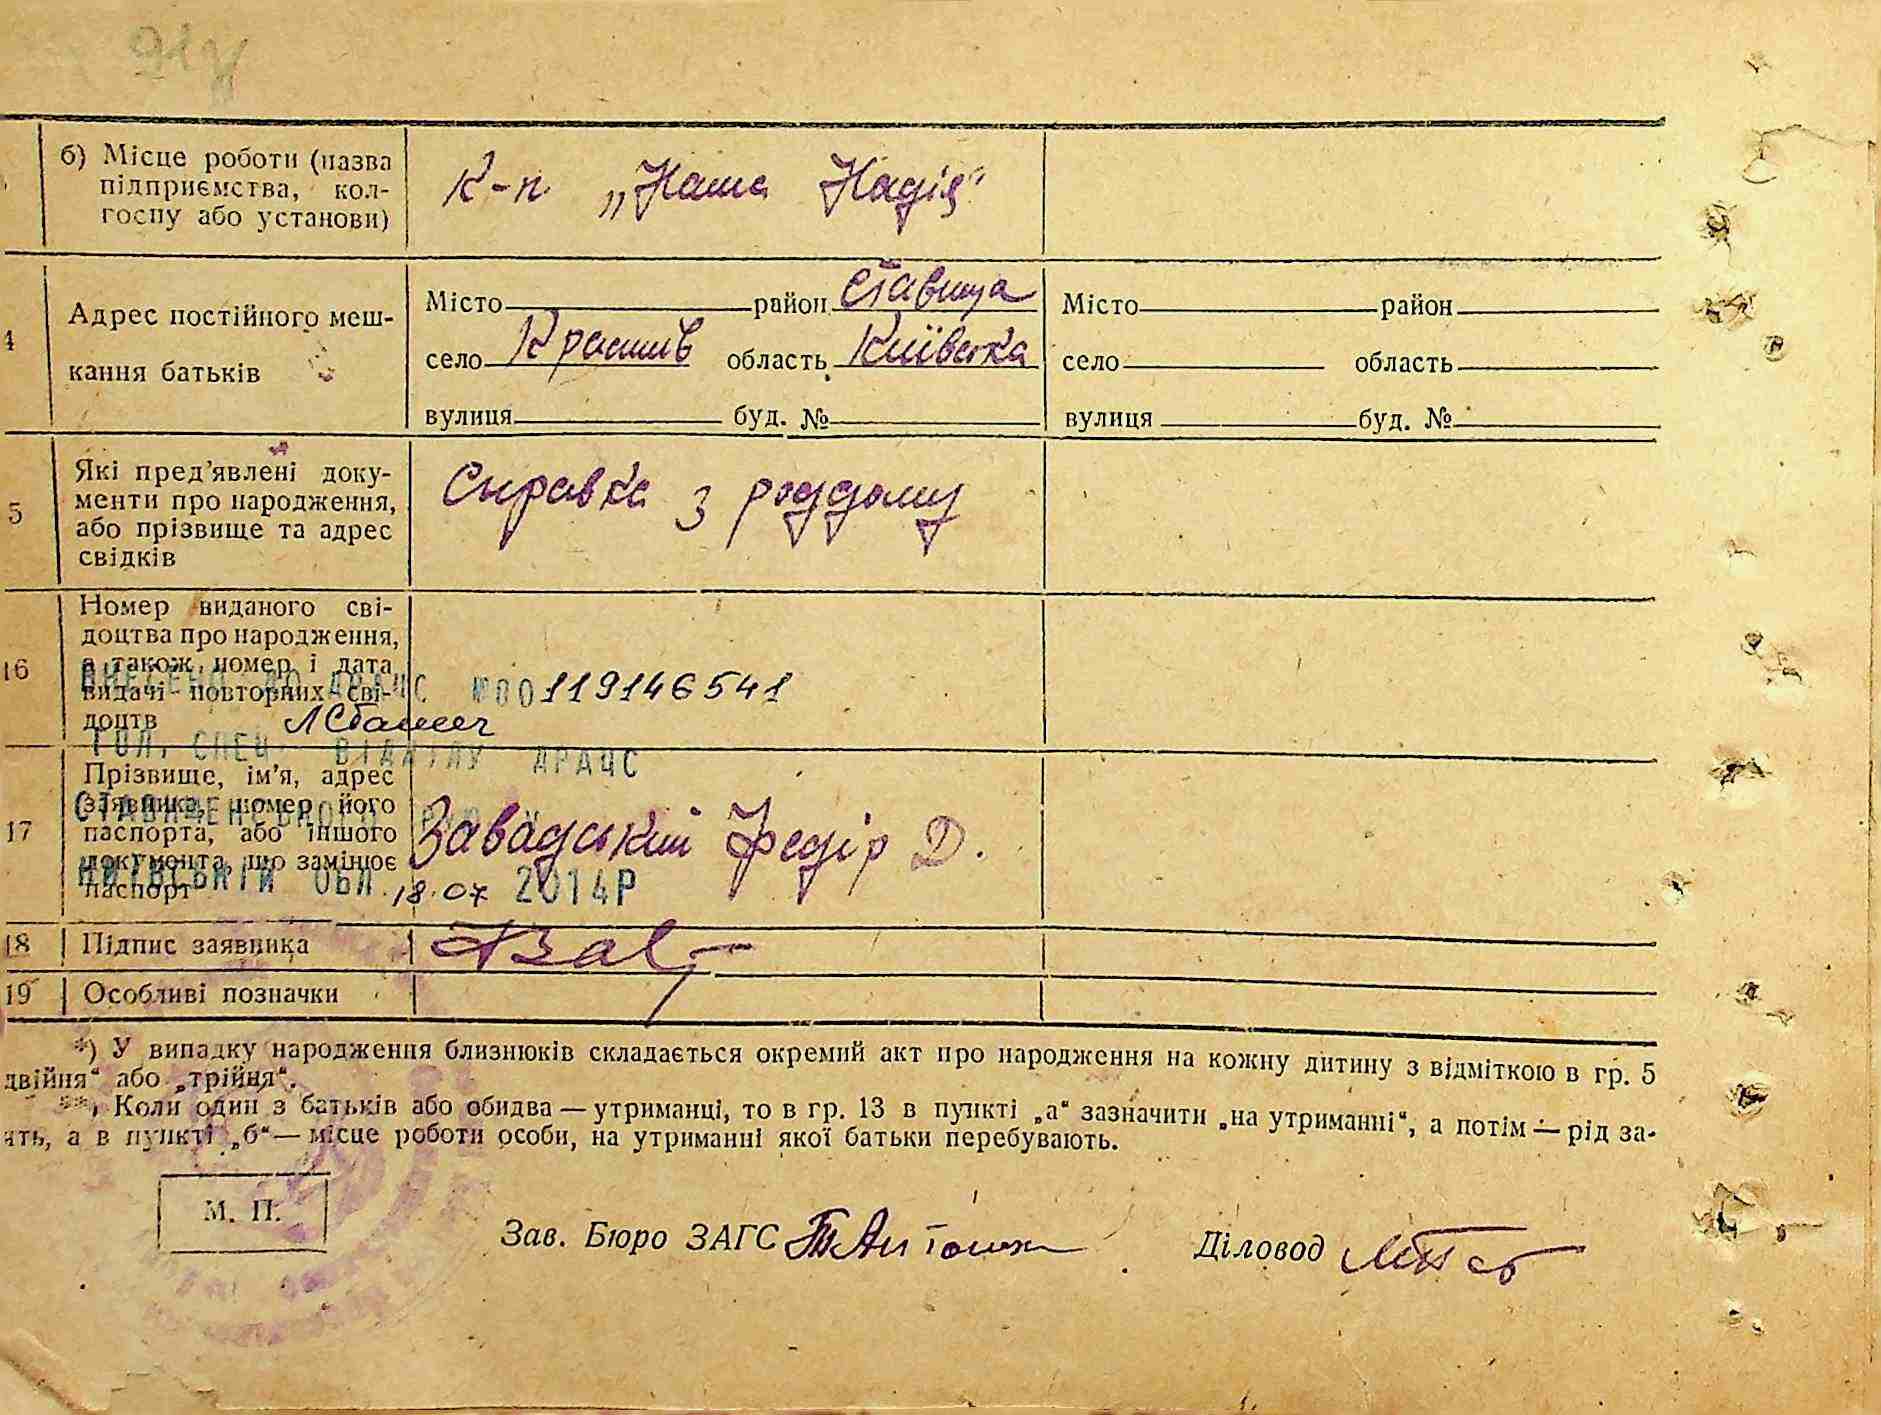 б) Місце роботи (назва
підприємства, кол-
госпу або установи)
К-п „Наша Надія“
4
Адрес постійного меш-
кання батьків
Місто район Ставища
село Красилів область Київська
вулиця буд. №
Місто район
село область
вулиця буд. №
5
Які пред’явлені доку-
менти про народження,
або прізвище та адрес
свідків
Справка з роддому
16
Номер виданого сві-
доцтва про народження,
а також номер і дата
видачі повторних сві-
доцтв
ВНЕСЕНО ДО ДРАЦС №00119146541
ГОЛ. СПЕЦ. ВІДДІЛУ ДРАЦС
17
Прізвище, ім’я, адрес
заявника, номер його
паспорта, або іншого
документа, що замінює
паспорт
Завадський Федір Д.
СТАВИЩЕНСЬКОГО
КИЇВСЬКІЙ ОБЛ. 18.07 2014Р
18
Підпис заявника
19
Особливі позначки
*) У випадку народження близнюків складається окремий акт про народження на кожну дитину з відміткою в гр. 5
двійня“ або „трійня“.
**) Коли один з батьків або обидва — утриманці, то в гр. 13 в пункті „а“ зазначити „на утриманні“, а потім — рід за-
ять, а в пункті „б“ — місце роботи особи, на утриманні якої батьки перебувають.
М. П.
Зав. Бюро ЗАГС
Діловод